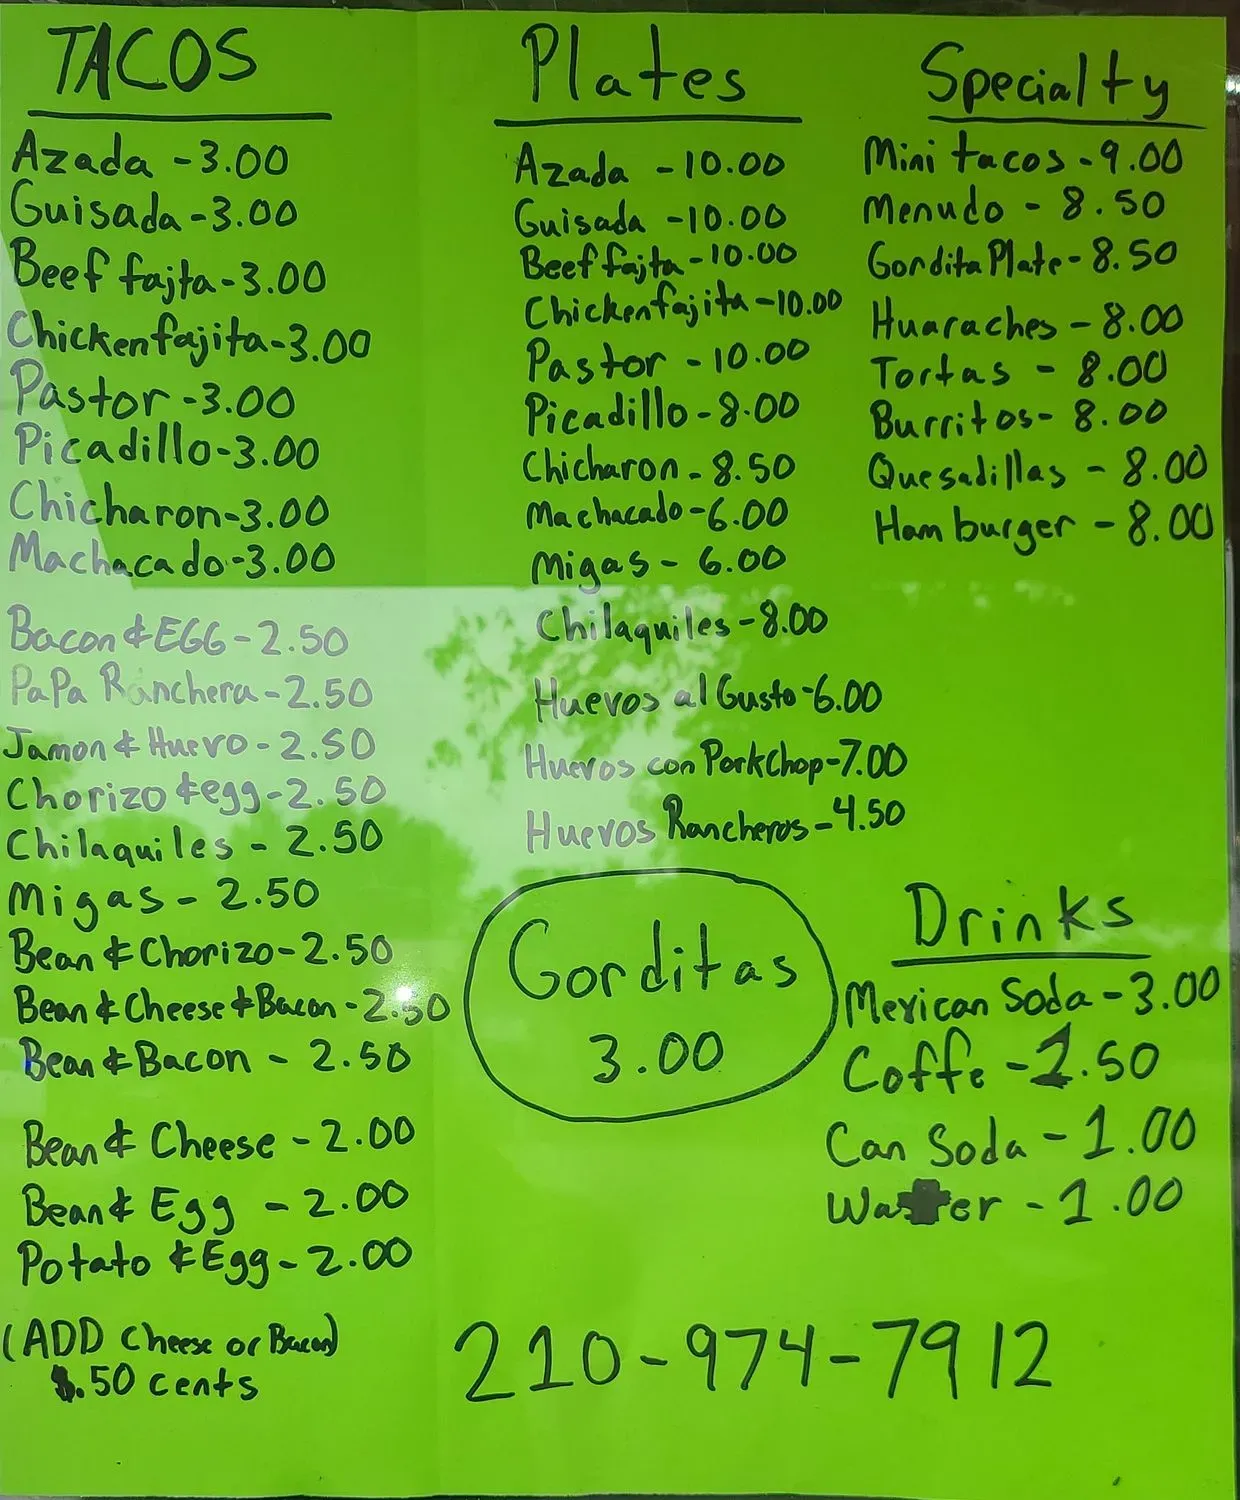 TACOS
Azada - 3.00
Guisada - 3.00
Beef fajta - 3.00
Chicken fajita - 3.00
Pastor - 3.00
Picadillo - 3.00
Chicharon - 3.00
Machacado - 3.00
Bacon & EGG - 2.50
PaPa Ranchera - 2.50
Jamon & Huevo - 2.50
Chorizo & egg - 2.50
Chilaquiles - 2.50
Migas - 2.50
Bean & Chorizo - 2.50
Bean & Cheese & Bacon - 2.50
Bean & Bacon - 2.50
Bean & Cheese - 2.00
Bean & Egg - 2.00
Potato & Egg - 2.00
(ADD Cheese or Bacon)
$.50 cents
Plates
Azada - 10.00
Guisada - 10.00
Beef fajta - 10.00
Chicken fajita - 10.00
Pastor - 10.00
Picadillo - 8.00
Chicharon - 8.50
Machacado - 6.00
Migas - 6.00
Chilaquiles - 8.00
Huevos al Gusto - 6.00
Huevos con PorkChop - 7.00
Huevos Rancheros - 4.50
Gorditas
3.00
Specialty
Mini tacos - 9.00
Menudo - 8.50
Gordita Plate - 8.50
Huaraches - 8.00
Tortas - 8.00
Burritos - 8.00
Quesadillas - 8.00
Hamburger - 8.00
Drinks
Mexican Soda - 3.00
Coffe - 1.50
Can Soda - 1.00
Water - 1.00
210-974-7912